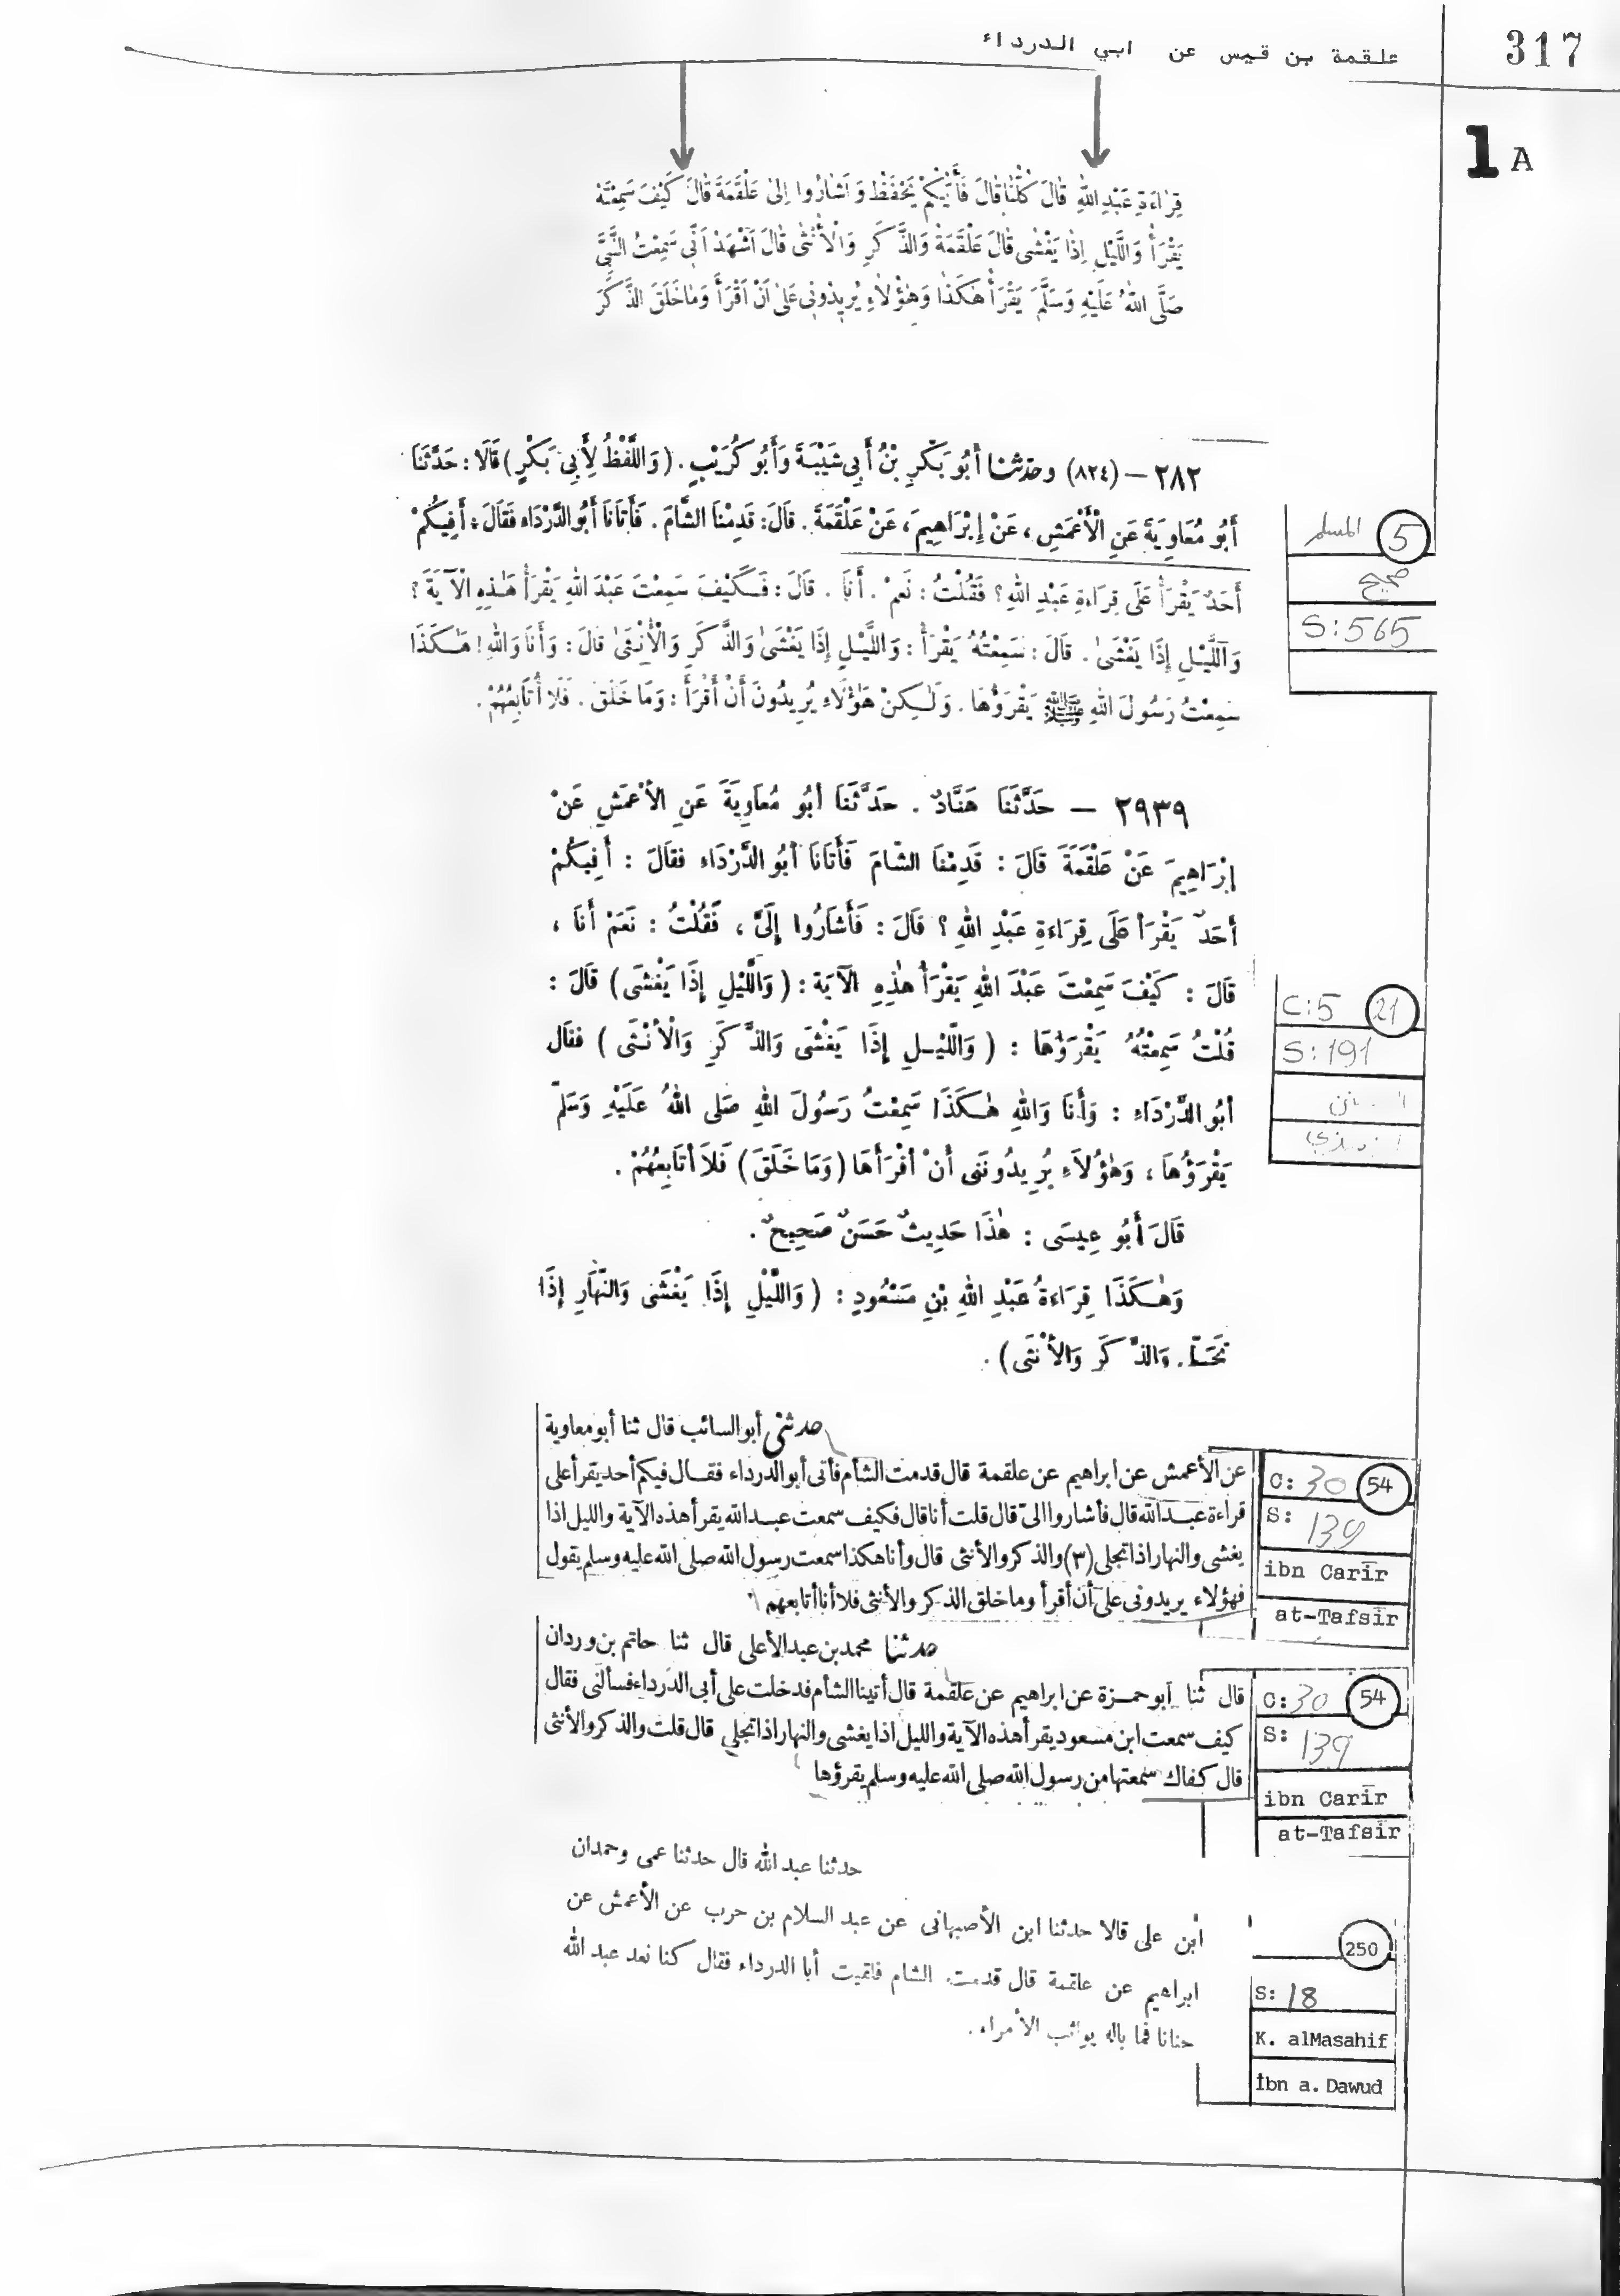 علقمة بن قيس عن ابي الدرداء
317
1 A
قِرَاءَةِ عَبْدِ اللهِ قَالَ كُلُّنَا قَالَ فَأَيُّكُمْ يَحْفَظُ وَاَشَارُوا اِلىٰ عَلْقَمَةَ قَالَ كَيْفَ سَمِعْتَهُ
يَقْرَأُ وَاللَّيْلِ اِذَا يَغْشٰى قَالَ عَلْقَمَةُ وَالذَّكَرِ وَالْأُنْثٰى قَالَ اَشْهَدُ اَنِّي سَمِعْتُ النَّبِيَّ
صَلَّى اللهُ عَلَيْهِ وَسَلَّمَ يَقْرَأُ هٰكَذَا وَهٰؤُلَاءِ يُرِيدُونِي عَلىٰ اَنْ اَقْرَأَ وَمَا خَلَقَ الذَّكَرَ
٢٨٢ – (٨٢٤) وحدثنا أَبُو بَكْرِ بْنُ أَبِي شَيْبَةَ وَأَبُو كُرَيْبٍ. (وَاللَّفْظُ لِأَبِي بَكْرٍ) قَالَا: حَدَّثَنَا
أَبُو مُعَاوِيَةَ عَنِ الْأَعْمَشِ، عَنْ إِبْرَاهِيمَ، عَنْ عَلْقَمَةَ. قَالَ: قَدِمْنَا الشَّامَ. فَأَتَانَا أَبُو الدَّرْدَاء فَقَالَ: أَفِيكُمْ
أَحَدٌ يَقْرَأُ عَلَى قِرَاءَةِ عَبْدِ اللهِ؟ فَقُلْتُ: نَعَمْ. أَنَا. قَالَ: فَكَيْفَ سَمِعْتَ عَبْدَ اللهِ يَقْرَأُ هَـٰذِهِ الْآيَةَ؟
وَاللَّيْلِ إِذَا يَغْشَىٰ. قَالَ: سَمِعْتُهُ يَقْرَأُ: وَاللَّيْلِ إِذَا يَغْشَىٰ وَالذَّكَرِ وَالْأُنْثَىٰ قَالَ: وَأَنَا وَاللهِ! هَـٰكَذَا
سَمِعْتُ رَسُولَ اللهِ ﷺ يَقْرَؤُهَا. وَلَـٰكِنْ هَؤُلَاءِ يُرِيدُونَ أَنْ أَقْرَأَ: وَمَا خَلَقَ. فَلَا أُتَابِعُهُمْ.
5 المسلم
صحيح
S:565
٢٩٣٩ – حَدَّثَنَا هَنَّادٌ. حَدَّثَنَا أَبُو مُعَاوِيَةَ عَنِ الأَعْمَشِ عَنْ
إِبْرَاهِيمَ عَنْ عَلْقَمَةَ قَالَ: قَدِمْنَا الشَّامَ فَأَتَانَا أَبُو الدَّرْدَاءِ فقَالَ: أَفِيكُمْ
أَحَدٌ يَقْرَأُ عَلَى قِرَاءَةِ عَبْدِ اللهِ؟ قَالَ: فَأَشَارُوا إِلَيَّ، فَقُلْتُ: نَعَمْ أَنَا،
قَالَ: كَيْفَ سَمِعْتَ عَبْدَ اللهِ يَقْرَأُ هٰذِهِ الآيَةَ: (وَاللَّيْلِ إِذَا يَغْشَى) قَالَ:
قُلْتُ سَمِعْتُهُ يَقْرَؤُهَا: (وَاللَّيْلِ إِذَا يَغْشَى وَالذَّكَرِ وَالْأُنْثَى) فقَال
أَبُو الدَّرْدَاءِ: وَأَنَا وَاللهِ هٰكَذَا سَمِعْتُ رَسُولَ اللهِ صَلى اللهُ عَلَيْهِ وَسَلّمَ
يَقْرَؤُهَا، وَهٰؤُلَاءِ يُرِيدُونَنِي أَنْ أَقْرَأَهَا (وَمَا خَلَقَ) فَلَا أُتَابِعُهُمْ.
قَالَ أَبُو عِيسَى: هٰذَا حَدِيثٌ حَسَنٌ صَحِيحٌ.
وَهٰكَذَا قِرَاءَةُ عَبْدِ اللهِ بْنِ مَسْعُودٍ: (وَاللَّيْلِ إِذَا يَغْشَى وَالنَّهَارِ إِذَا
تَجَلَّى. وَالذَّكَرِ وَالأُنْثَى).
C:5 21
S:191
حدثني أبو السائب قال ثنا أبو معاوية
عن الأعمش عن ابراهيم عن علقمة قال قدمت الشأم فأتى أبو الدرداء فقال فيكم أحد يقرأ على
قراءة عبد الله قال فأشاروا الىّ قال قلت أنا قال فكيف سمعت عبد الله يقرأ هذه الآية والليل اذا
يغشى والنهار اذا تجلى (٣) والذكر والأنثى قال وأنا هكذا سمعت رسول الله صلى الله عليه وسلم يقول
فهؤلاء يريدونى على أن أقرأ وما خلق الذكر والأنثى فلا أنا أتابعهم
C: 30 54
S: 139
ibn Carīr
at-Tafsīr
حدثنا محمد بن عبد الأعلى قال ثنا حاتم بن وردان
قال ثنا أبو حمزة عن ابراهيم عن علقمة قال أتينا الشأم فدخلت على أبى الدرداء فسألنى فقال
كيف سمعت ابن مسعود يقرأ هذه الآية والليل اذا يغشى والنهار اذا تجلى قال قلت والذكر والأنثى
قال كفاك سمعتها من رسول الله صلى الله عليه وسلم يقرؤها
C: 30 54
S: 139
ibn Carīr
at-Tafsīr
حدثنا عبد الله قال حدثنا عمى وحمدان
ابن على قالا حدثنا ابن الأصبهانى عن عبد السلام بن حرب عن الأعمش عن
ابراهيم عن علقمة قال قدمت الشام فلقيت أبا الدرداء فقال كنا نعد عبد الله
حنانا فما باله يواثب الأمراء.
250
S: 18
K. alMasahif
İbn a. Dawud